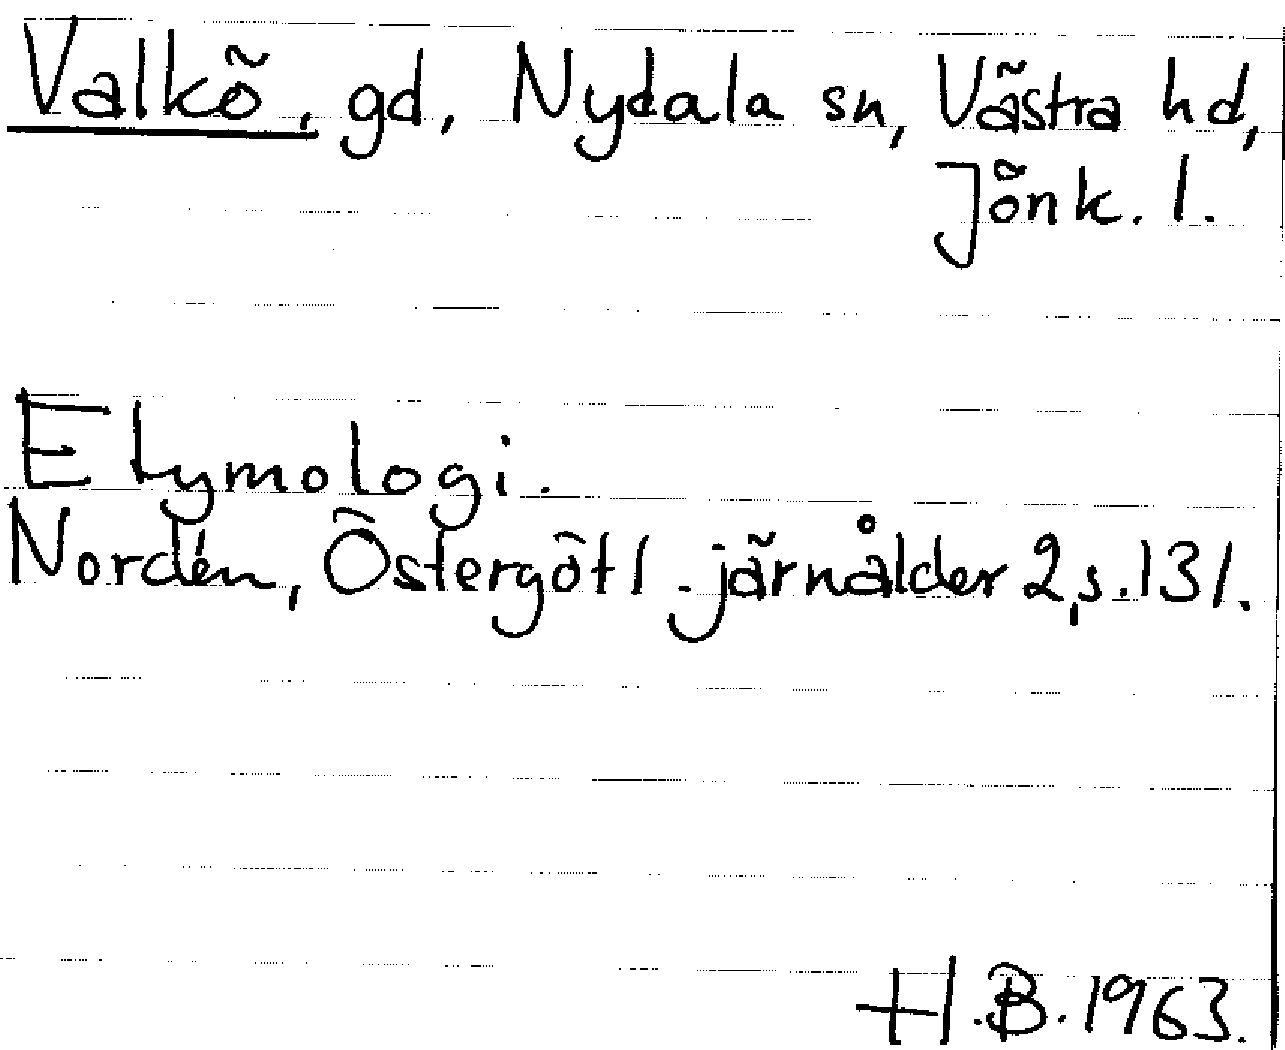 Valkö, gd, Nydala sn, Västra hd,
Jönk. l.
Etymologi.
Nordén, Östergötl. järnålder 2, s. 131.
H.B. 1963.